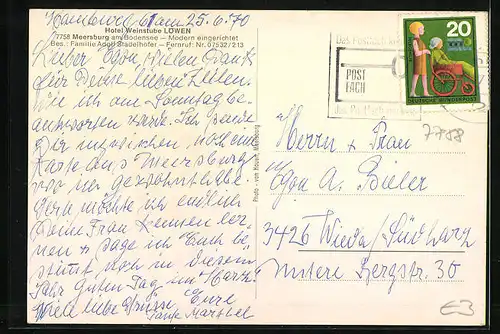 Hamburg 61 am 25.6.70
Hotel Weinstube LÖWEN
7758 Meersburg am Bodensee – Modern eingerichtet
Bes.: Familie Adolf Stadelhofer – Fernruf: Nr. 07532/213
Lieber Egon, vielen Dank
für Deine lieben Zeilen.
die ich am Sonntag be-
antworten werde. Ich sende
Dir inzwischen noch eine
Karte aus Meersburg
wo wir gewohnt habe.
Gern möchte ich endlich
Deine Frau kennen ler-
nen + sage ich Euch be-
stimmt noch in diesem
Jahr Guten Tag im Harz!
Viele liebe Grüsse Eure
Tante
POST
FACH
20
DEUTSCHE BUNDESPOST
7758
Herrn + Frau
Egon A. Bieler
3426 Wieda/Südharz
Untere Bergstr. 30
€3